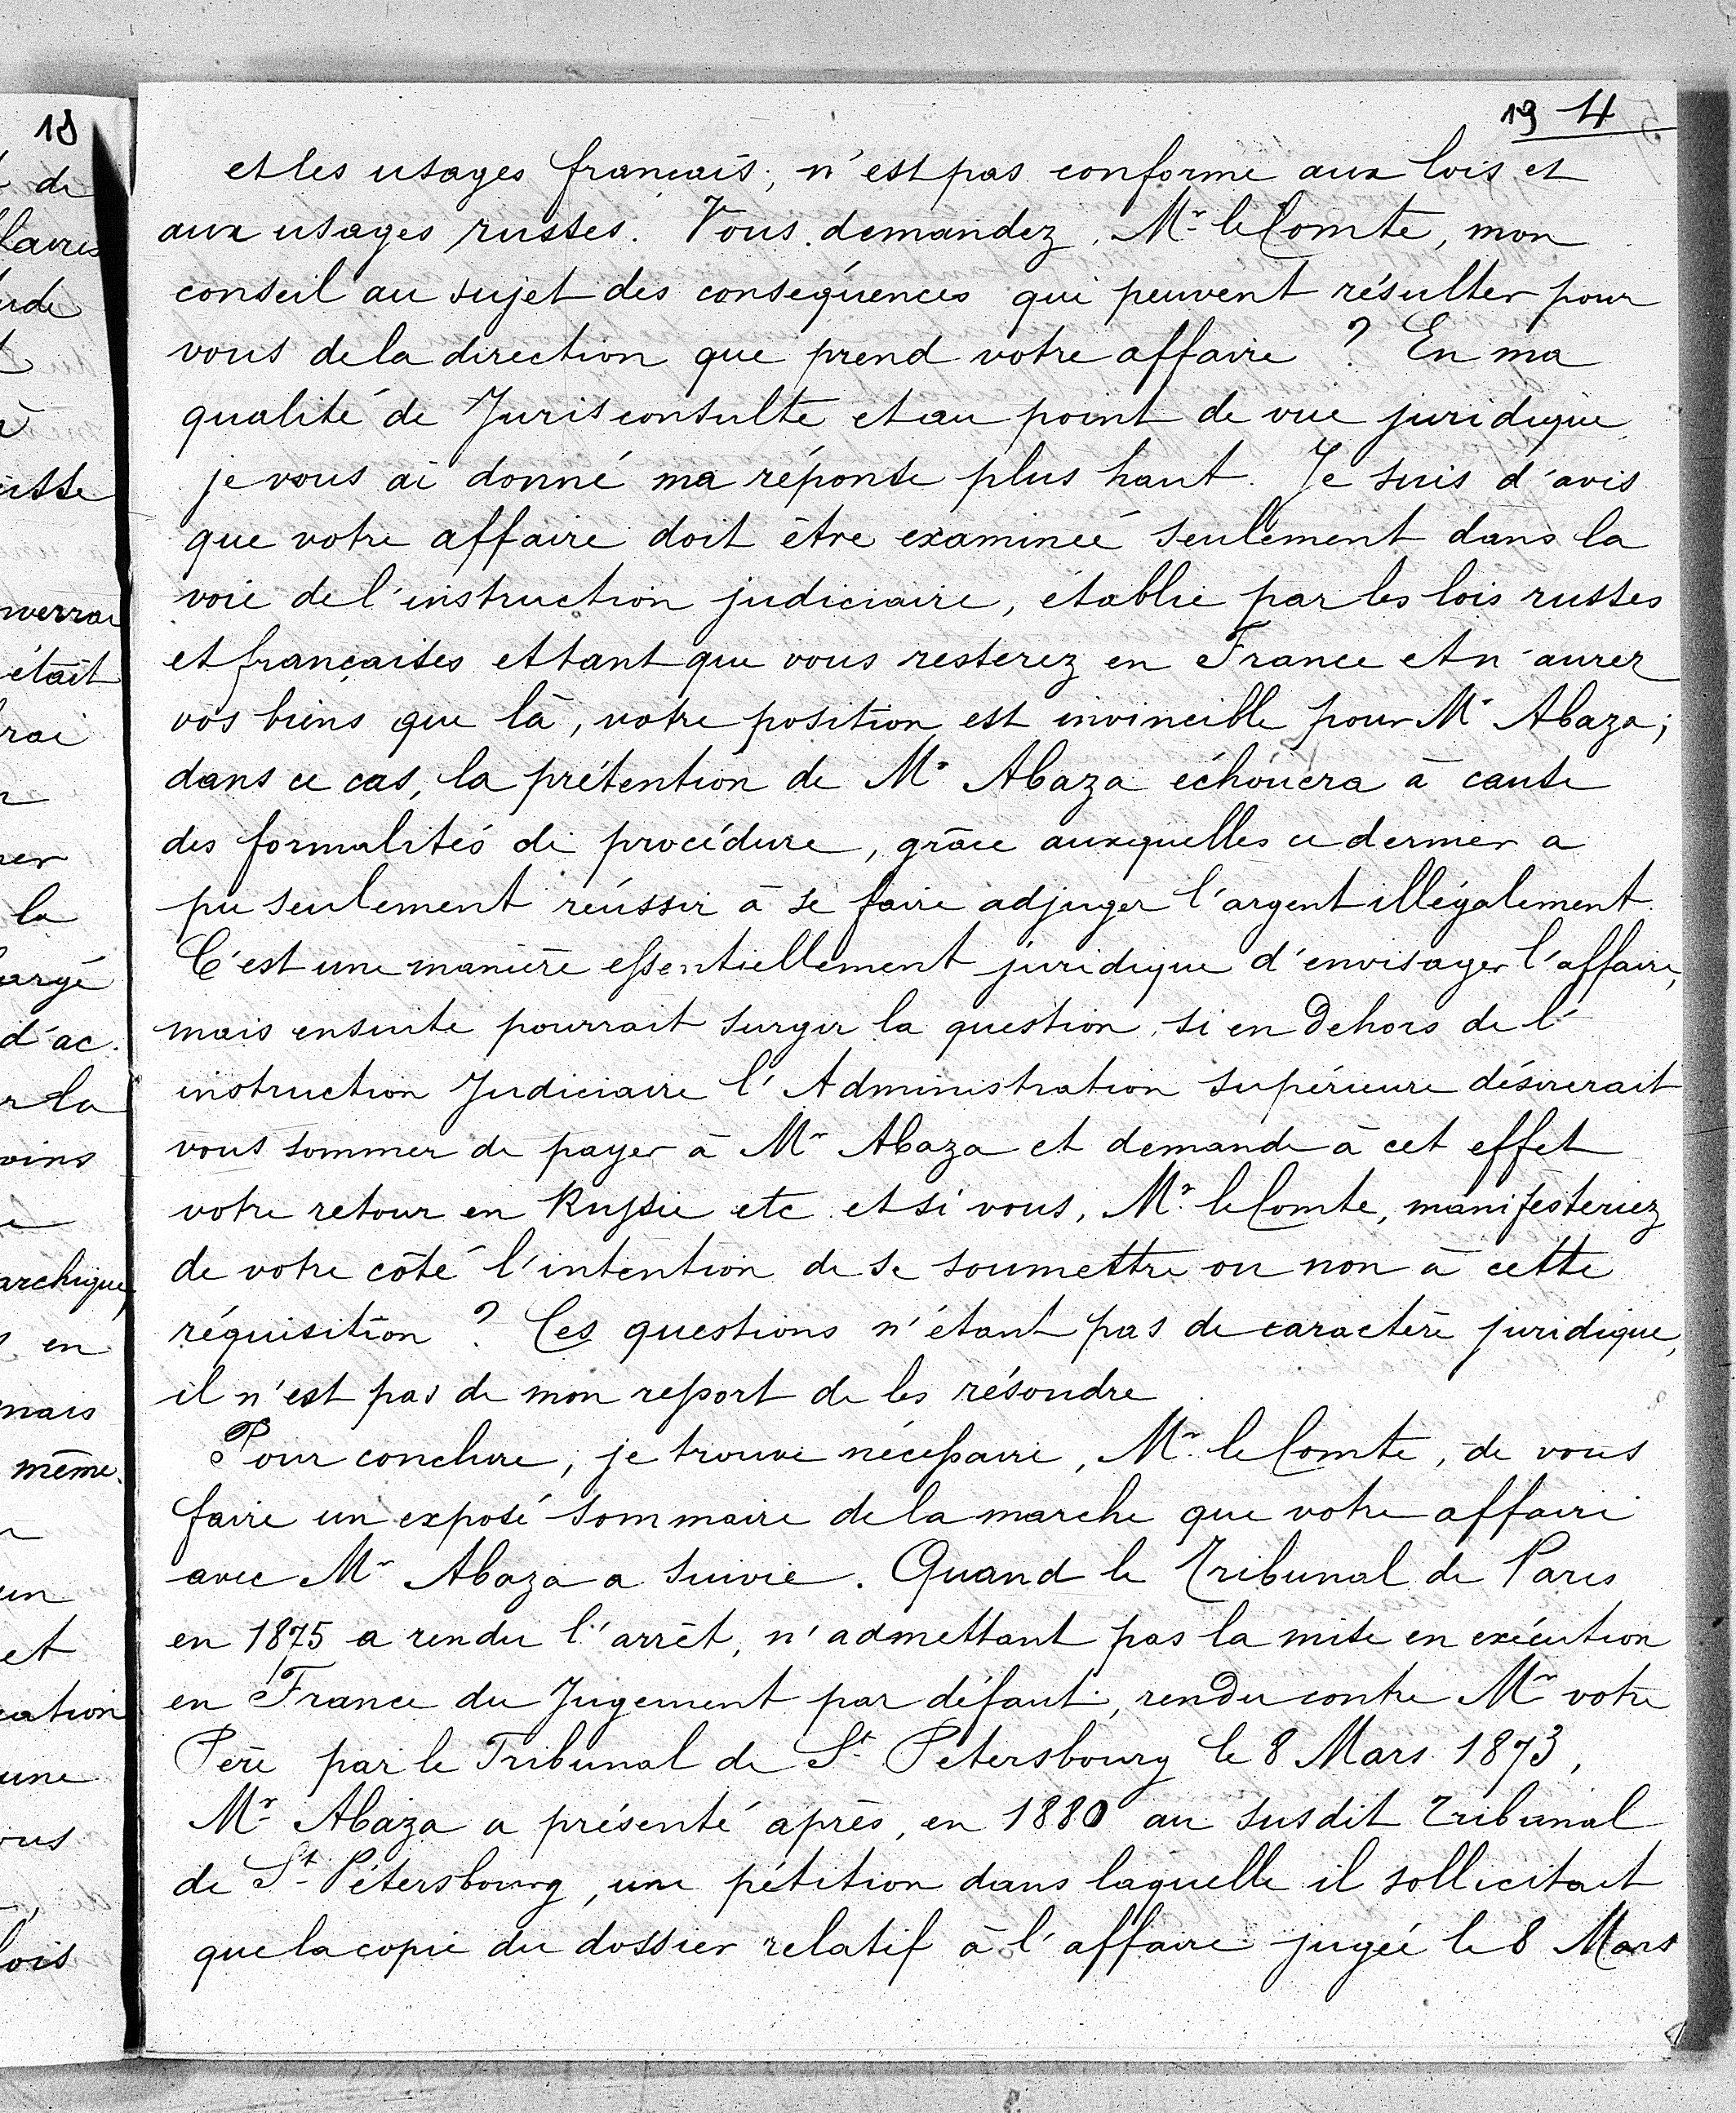 18
19 4
et les usages français, n'est pas conforme aux lois et
aux usages russes. Vous demandez, Mr le Comte, mon
conseil au sujet des conséquences qui peuvent résulter pour
vous de la direction que prend votre affaire ? En ma
qualité de Jurisconsulte et au point de vue juridique
je vous ai donné ma réponse plus haut. Je suis d'avis
que votre affaire doit être examinée seulement dans la
voie de l'instruction judiciaire, établie par les lois russes
et françaises et tant que vous resterez en France et n'aurez
vos biens que là, votre position est invincible pour Mr Abaza;
dans ce cas, la prétention de Mr Abaza échouera à cause
des formalités de procédure, grâce auxquelles ce dernier a
pu seulement réussir à se faire adjuger l'argent illégalement.
C'est une manière essentiellement juridique d'envisager l'affaire,
mais ensuite pourrait surgir la question, si en dehors de l'
instruction Judiciaire l'Administration supérieure désirerait
vous sommer de payer à Mr Abaza et demande à cet effet
votre retour en Russie etc et si vous, Mr le Comte, manifesteriez
de votre côté l'intention de se soumettre ou non à cette
réquisition ? Ces questions n'étant pas de caractère juridique,
il n'est pas de mon ressort de les résoudre
Pour conclure, je trouve nécessaire, Mr le Comte, de vous
faire un exposé sommaire de la marche que votre affaire
avec Mr Abaza a suivie. Quand le Tribunal de Paris
en 1875 a rendu l'arrêt, n'admettant pas la mise en exécution
en France du Jugement par défaut, rendu contre Mr votre
Père par le Tribunal de St Petersbourg le 8 Mars 1873,
Mr Abaza a présenté après, en 1880 au susdit Tribunal
de St Pétersbourg, une pétition dans laquelle il sollicitait
que la copie du dossier relatif à l'affaire jugée le 8 Mars